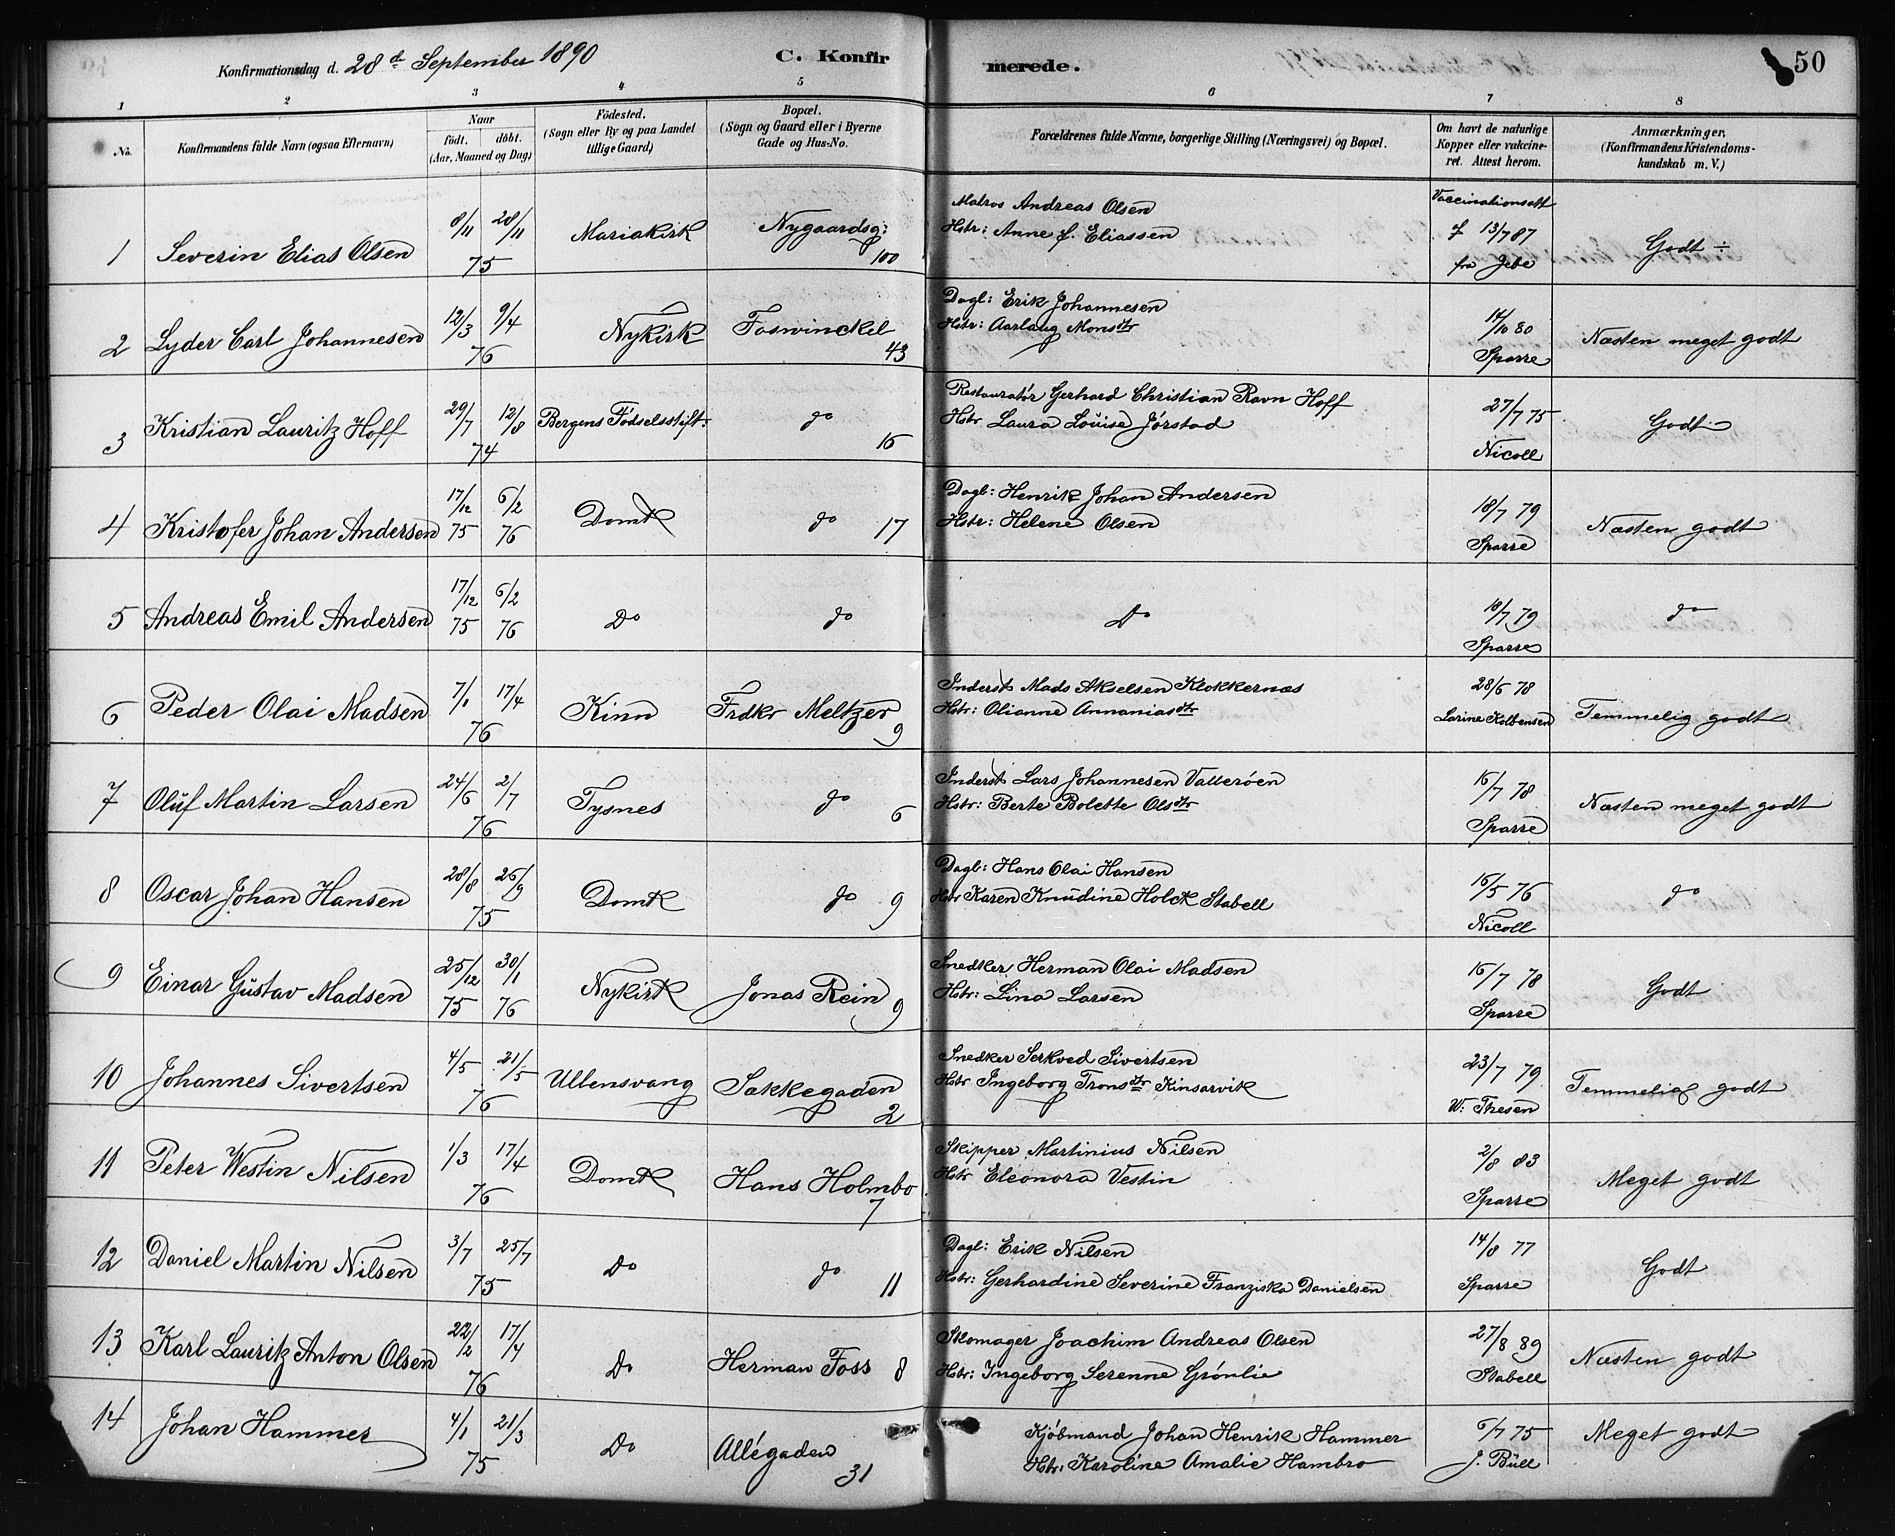 Konfirmationsdag d. 28d September 1890 C. Konfirmerede. 50
1 2 3 4 5 6 7 8
No.
Konfirmandens fulde Navn (ogsaa Efternavn)
Naar
født. døbt.
(Aar, Maaned og Dag)
Fødested.
(Sogn eller By og paa Landet
tillige Gaard)
Bopæl.
(Sogn og Gaard eller i Byerne
Gade og Hus-No.
Forældrenes fulde Navne, borgerlige Stilling (Næringsvei) og Bopæl.
Om havt de naturlige
Kopper eller vakcine-
ret. Attest herom.
Anmærkninger.
(Konfirmandens Kristendoms-
kundskab m. V.)
1 Severin Elias Olsen 8/11 28/11 75 Mariakirk Nygaardsg: 100
Matros Andreas Olsen
Hstr: Anne f. Eliassen
Vaccinationsatt
f 13/7 87
fra Jebe
Godt ÷
2 Lyder Carl Johannesen 12/3 9/4 76 Nykirk Foswinckel 43
Dagl: Erik Johannesen
Hstr: Aarlaug Monsdtr
14/10 80
Sparre
Næsten meget godt
3 Kristian Lauritz Hoff 29/7 12/8 74 Bergens Fødselsstift: do 16
Restauratør Gerhard Christian Ravn Hoff
Hstr Laura Louise Jørstad
27/7 75
Nicoll
Godt
4 Kristofer Johan Andersen 17/12 75 6/2 76 Domk do 17
Dagl: Henrik Johan Andersen
Hstr: Helene Olsen
18/7 79
Sparre
Næsten godt
5 Andreas Emil Andersen 17/12 75 6/2 76 Do do
Do
18/7 79
Sparre
do
6 Peder Olai Madsen 7/1 17/4 76 Kinn Frdkr Meltzer 9
Inderst Mads Akselsen Klokkernæs
Hstr: Olianne Annaniasdtr
28/6 78
Larine Kolbensen
Temmelig godt
7 Oluf Martin Larsen 24/6 2/7 76 Tysnes do 6
Inderst Lars Johannesen Vallerøen
Hstr: Berte Bolette Olsdtr
16/7 78
Sparre
Næsten meget godt
8 Oscar Johan Hansen 28/8 26/9 75 Domk do 9
Dagl: Hans Olai Hansen
Hstr Karen Knudine Holck Stabell
16/5 76
Nicoll
do
9 Einar Gustav Madsen 25/12 75 30/1 76 Nykirk Jonas Rein 9
Snedker Herman Olai Madsen
Hstr: Lina Larsen
16/7 78
Sparre
Godt
10 Johannes Sivertsen 4/5 21/5 76 Ullensvang Sakkegaden 2
Snedker Serkved Sivertsen
Hstr Ingeborg Tronsdtr Kinsarvik
23/7 79
W: Thesen
Temmelig godt
11 Peter Westin Nilsen 1/3 17/4 76 Domk Hans Holmbo 7
Skipper Martinius Nilsen
Hstr Eleonora Vestin
2/8 83
Sparre
Meget godt
12 Daniel Martin Nilsen 3/7 25/7 75 Do do 11
Dagl: Erik Nilsen
Hstr: Gerhardine Severine Franziska Danielsen
14/8 77
Sparre
Godt
13 Karl Lauritz Anton Olsen 22/2 17/4 76 Do Herman Foss 8
Skomager Joachim Andreas Olsen
Hstr: Ingeborg Serenne Grønlie
27/8 89
Stabell
Næsten godt
14 Johan Hammer 4/1 21/3 75 Do Allégaden 31
Kjøbmand Johan Henrik Hammer
Hstr: Karoline Amalie Hambro
6/7 75
J. Büll
Meget godt